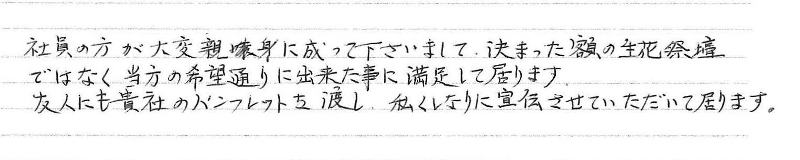 社員の方が大変親嚷身に成って下さいまして、決まった額の生花祭壇
ではなく当方の希望通りに出来た事に満足して居ります。
友人にも貴社のパンフレットを渡し、私くしなりに宣伝させていただいて居ります。